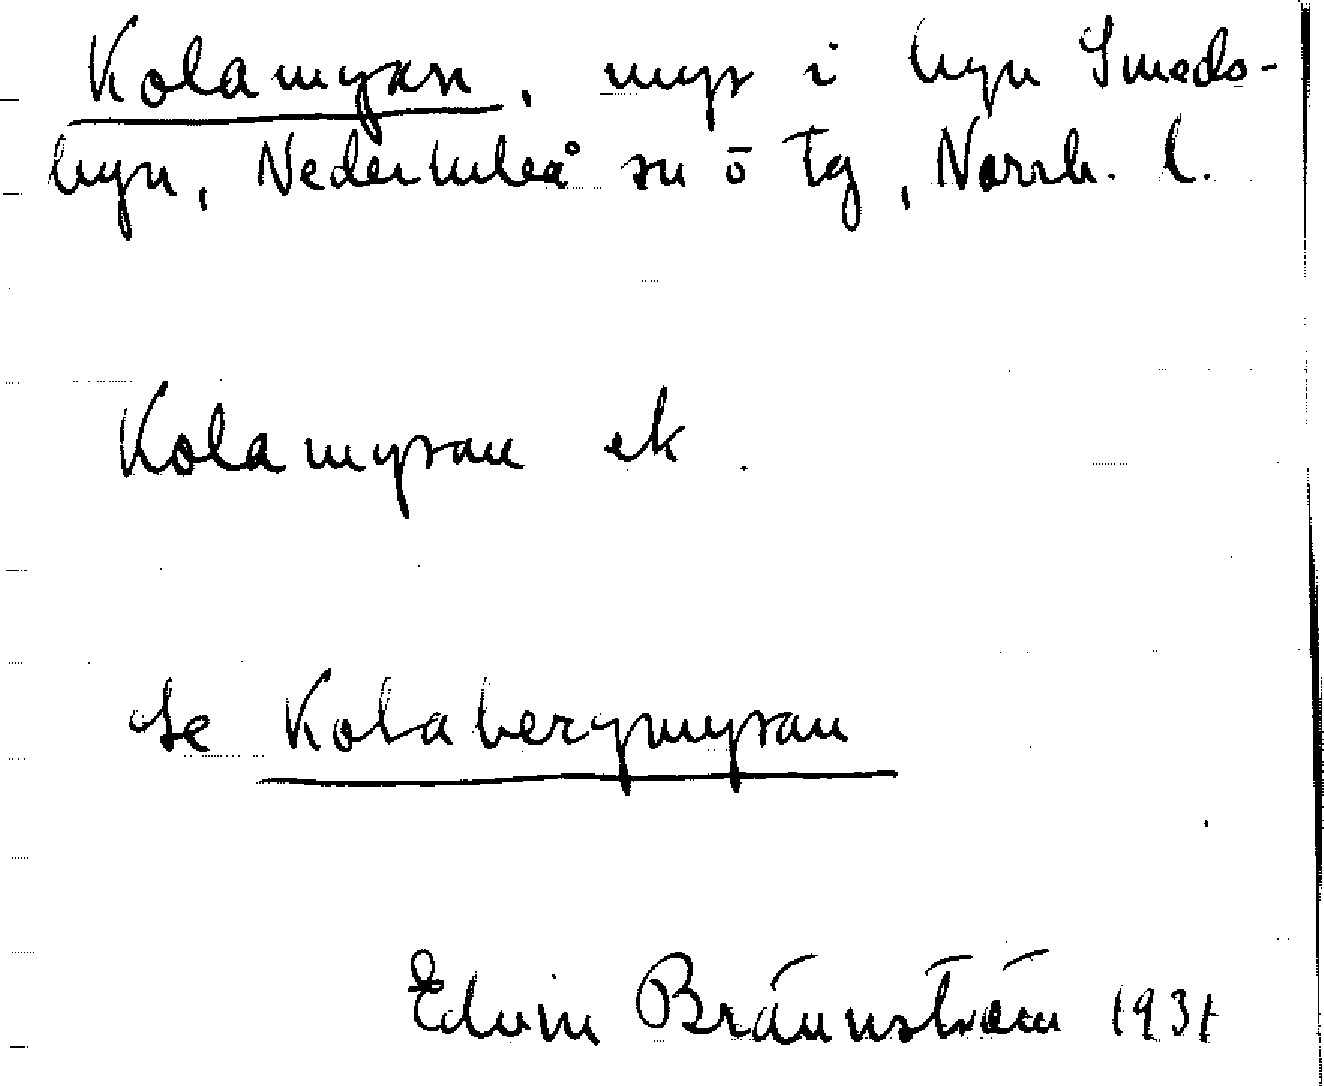 Kolamyran, myr i byn Smeds-
byn, Nederluleå sn ö tg, Norrb. l.
Kolamyran ek.
Se Kolabergmyran
Edvin Brännström 1931